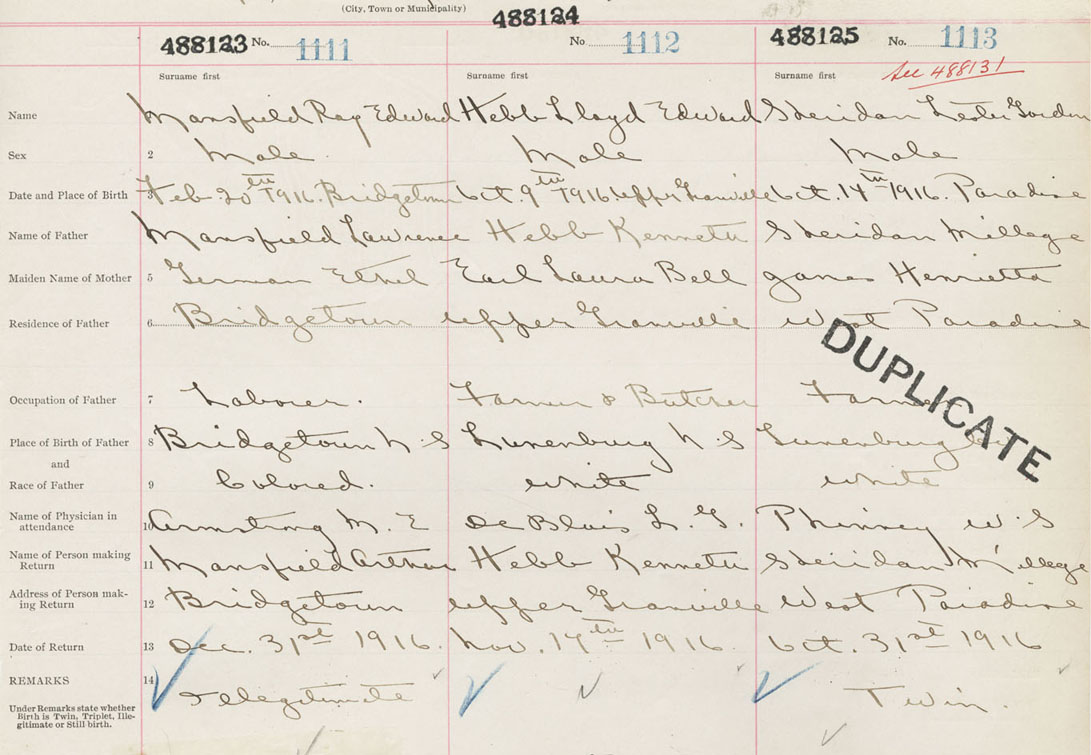 (City, Town or Municipality)
488123 No. 1111 488124 No 1112 488125 No. 1113
See 488131
Surname first Surname first Surname first
Name Mansfield Ray Edward Hebb Lloyd Edward Sheridan Lester Gordon
Sex 2 Male. Male Male
Date and Place of Birth 3 Feb. 20th 1916. Bridgetown Oct. 9th 1916 Upper Granville Oct. 14th 1916. Paradise
Name of Father Mansfield Lawrence Hebb Kenneth Sheridan Millege
Maiden Name of Mother 5 German Ethel Earl Laura Bell Henrietta
Residence of Father 6 Bridgetown Upper Granville West Paradise
DUPLICATE
Occupation of Father 7 Laborer. Farmer & Butcher Farmer
Place of Birth of Father 8 Bridgetown N.S Lunenburg N.S Lunenburg
and
Race of Father 9 Colored. White White
Name of Physician in
attendance 10 Armstrong M. E De Blois L. G. Phinney W. S
Name of Person making
Return 11 Mansfield Arthur Hebb Kenneth Sheridan Millege
Address of Person mak-
ing Return 12 Bridgetown Upper Granville West Paradise
Date of Return 13 Dec. 31st 1916. Nov. 17th 1916. Oct. 31st 1916
REMARKS 14 Illegitimate Twin.
Under Remarks state whether
Birth is Twin, Triplet, Ille-
gitimate or Still birth.